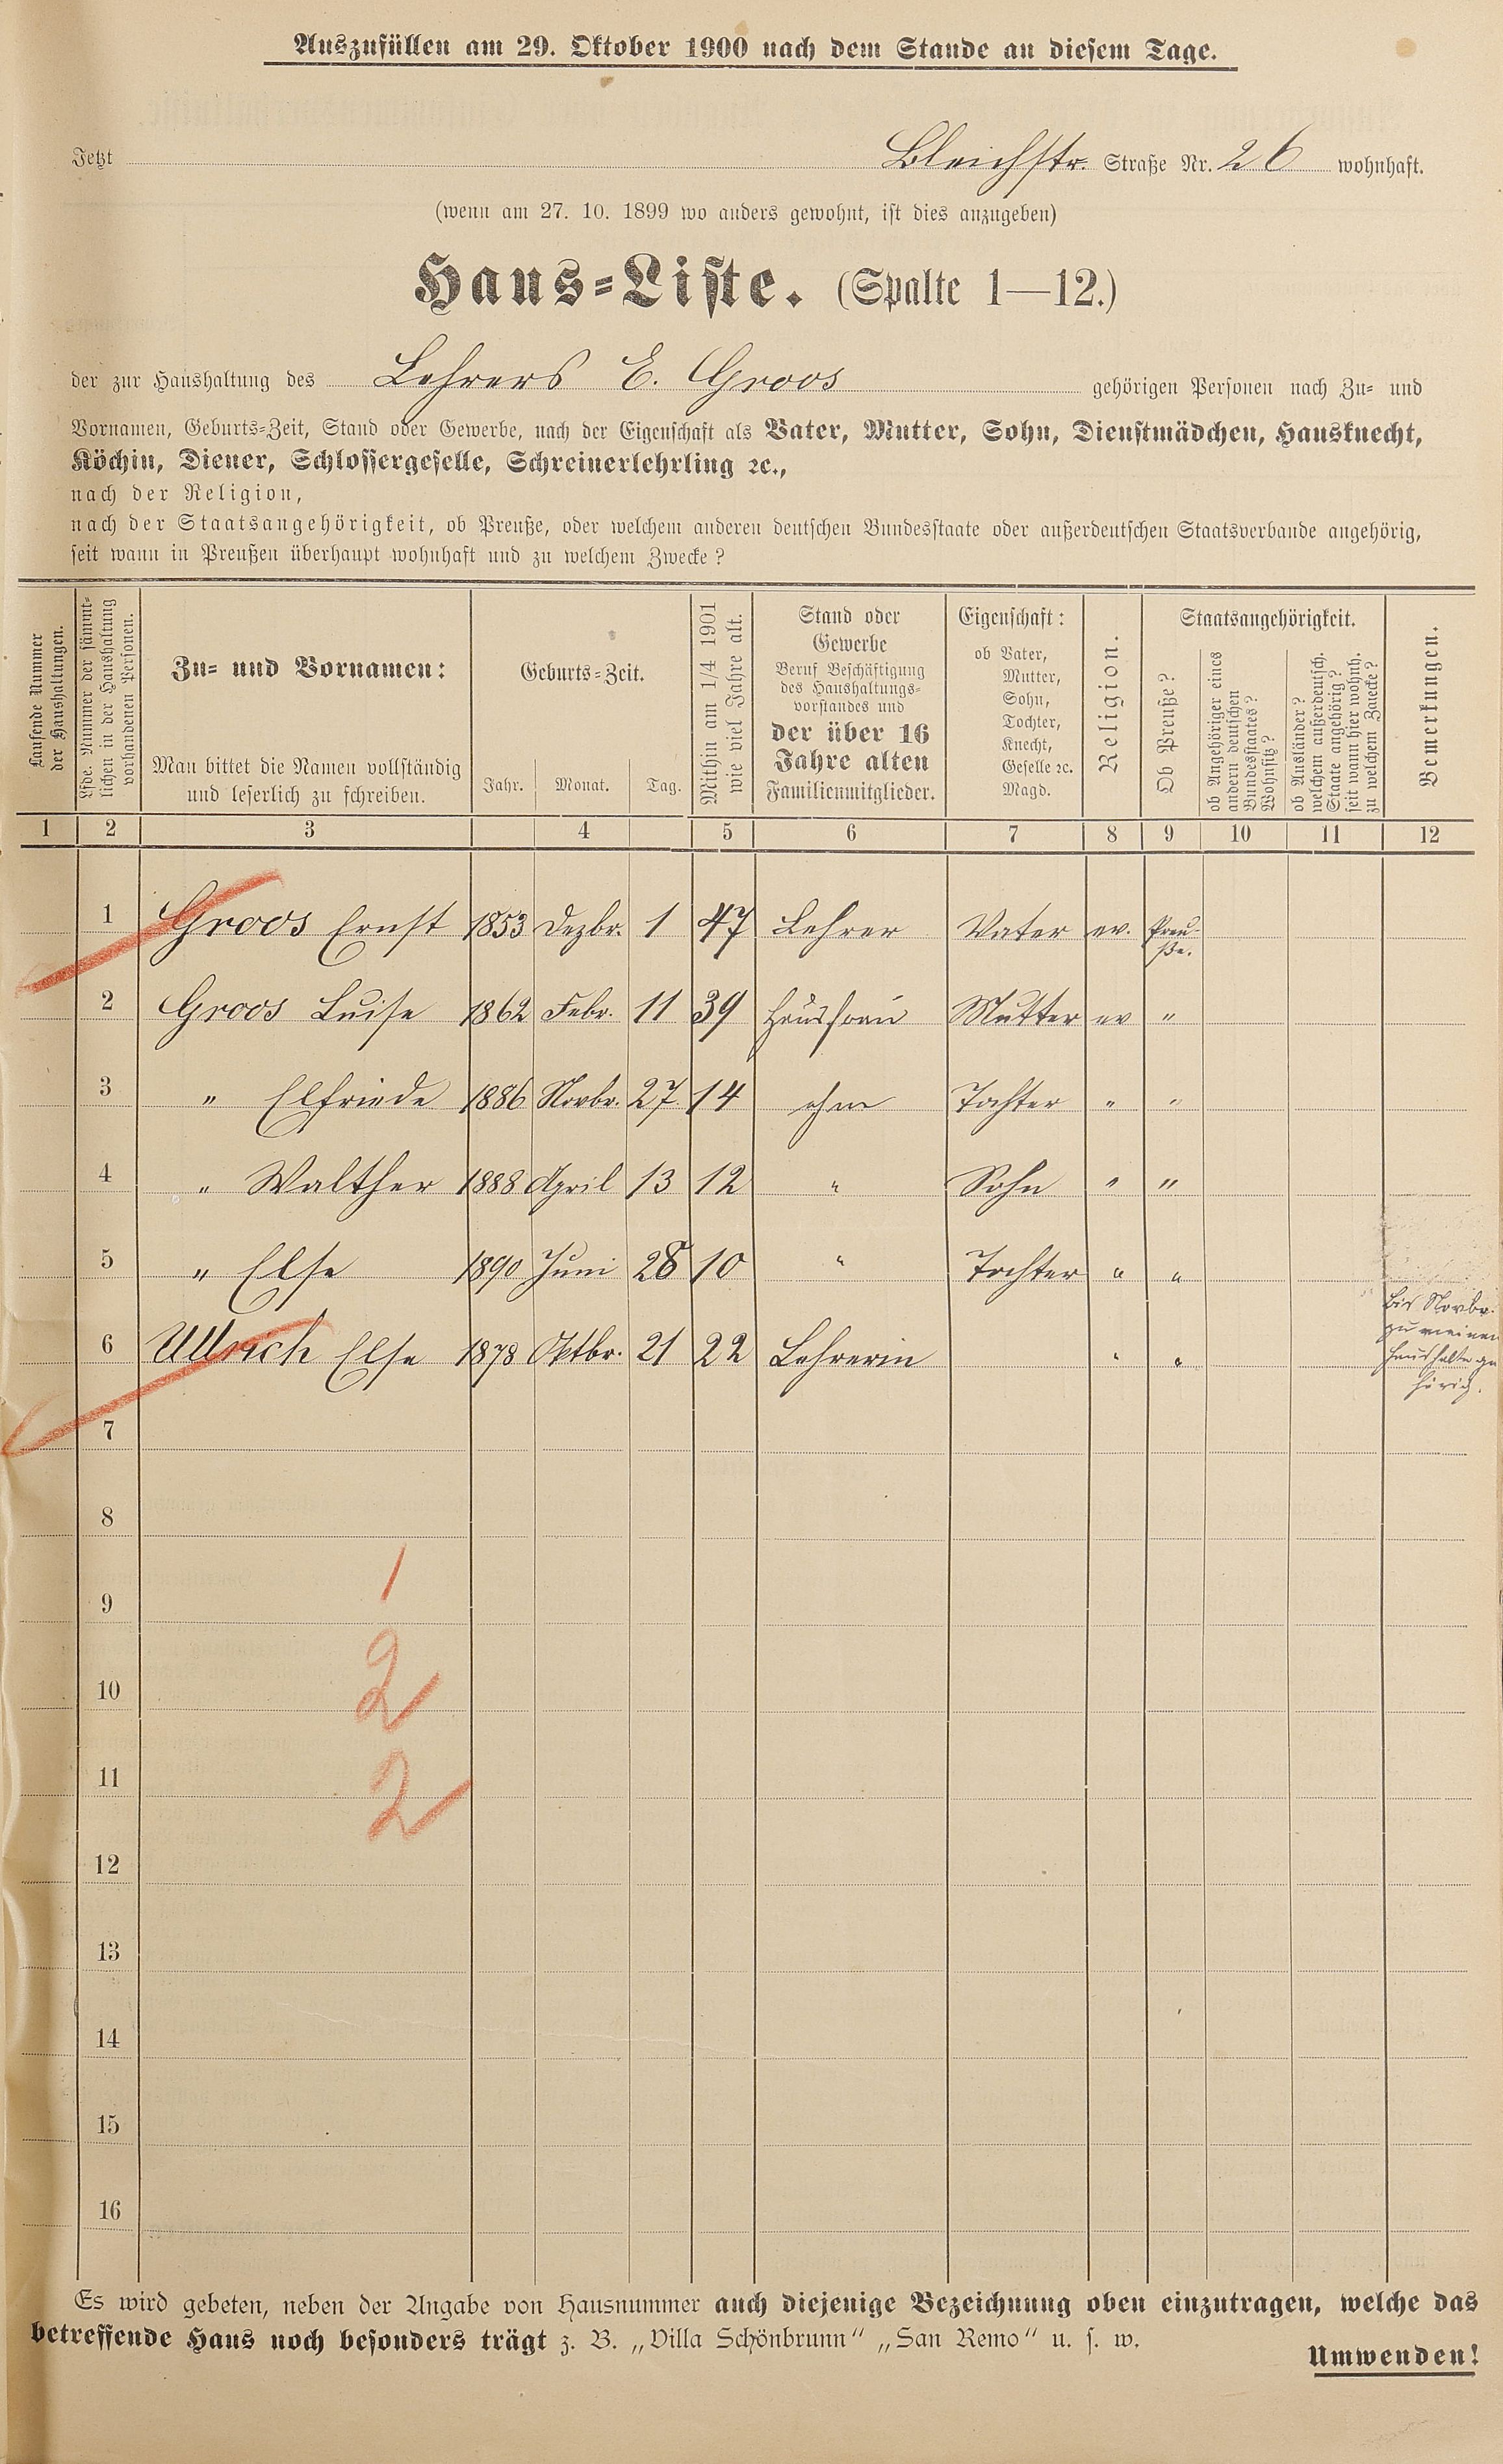 Auszufüllen am 29. Oktober 1900 nach dem Stande an diesem Tage.
Jetzt Bleichstr. Straße Nr. 26 wohnhaft.
(wenn am 27. 10. 1899 wo anders gewohnt, ist dies anzugeben)
Haus=Liste. (Spalte 1—12.)
der zur Haushaltung des Lehrers E. Groos gehörigen Personen nach Zu= und
Vornamen, Geburts=Zeit, Stand oder Gewerbe, nach der Eigenschaft als Vater, Mutter, Sohn, Dienstmädchen, Hausknecht,
Köchin, Diener, Schlossergeselle, Schreinerlehrling ꝛc.,
nach der Religion,
nach der Staatsangehörigkeit, ob Preuße, oder welchem anderen deutschen Bundesstaate oder außerdeutschen Staatsverbande angehörig,
seit wann in Preußen überhaupt wohnhaft und zu welchem Zwecke?
Laufende Nummer
der Haushaltungen.
Lfde. Nummer der sämmt=
lichen in der Haushaltung
vorhandenen Personen.
Zu= und Vornamen:
Man bittet die Namen vollständig
und leserlich zu schreiben.
Geburts=Zeit.
Jahr. Monat. Tag.
Mithin am 1/4 1901
wie viel Jahre alt.
Stand oder
Gewerbe
Beruf Beschäftigung
des Haushaltungs=
vorstandes und
der über 16
Jahre alten
Familienmitglieder.
Eigenschaft:
ob Vater,
Mutter,
Sohn,
Tochter,
Knecht,
Geselle ꝛc.
Magd.
Religion.
Staatsangehörigkeit.
Ob Preuße?
ob Angehöriger eines
andern deutschen
Bundesstaates?
Wohnsitz?
ob Ausländer?
welchem außerdeutsch.
Staate angehörig?
seit wann hier wohnh.
zu welchem Zwecke?
Bemerkungen.
1 2 3 4 5 6 7 8 9 10 11 12
1 Groos Ernst 1853 Dezbr. 1 47 Lehrer Vater ev. Preu-
ße.
2 Groos Luise 1862 Febr. 11 39 Hausfrau Mutter ev "
3 " Elfriede 1886 Novbr. 27. 14 ohne Tochter " "
4 " Walther 1888 April 13 12 " Sohn " "
5 " Else 1890 Juni 28 10 " Tochter " "
6 Ullrich Else 1878 Oktbr. 21 22 Lehrerin " "
bis Novbr.
zu meinem
Haushalte ge
hörig.
7
8
1
9
2
10
2
11
12
13
14
15
16
Es wird gebeten, neben der Angabe von Hausnummer auch diejenige Bezeichnung oben einzutragen, welche das
betreffende Haus noch besonders trägt z. B. „Villa Schönbrunn“ „San Remo“ u. s. w.
Umwenden!